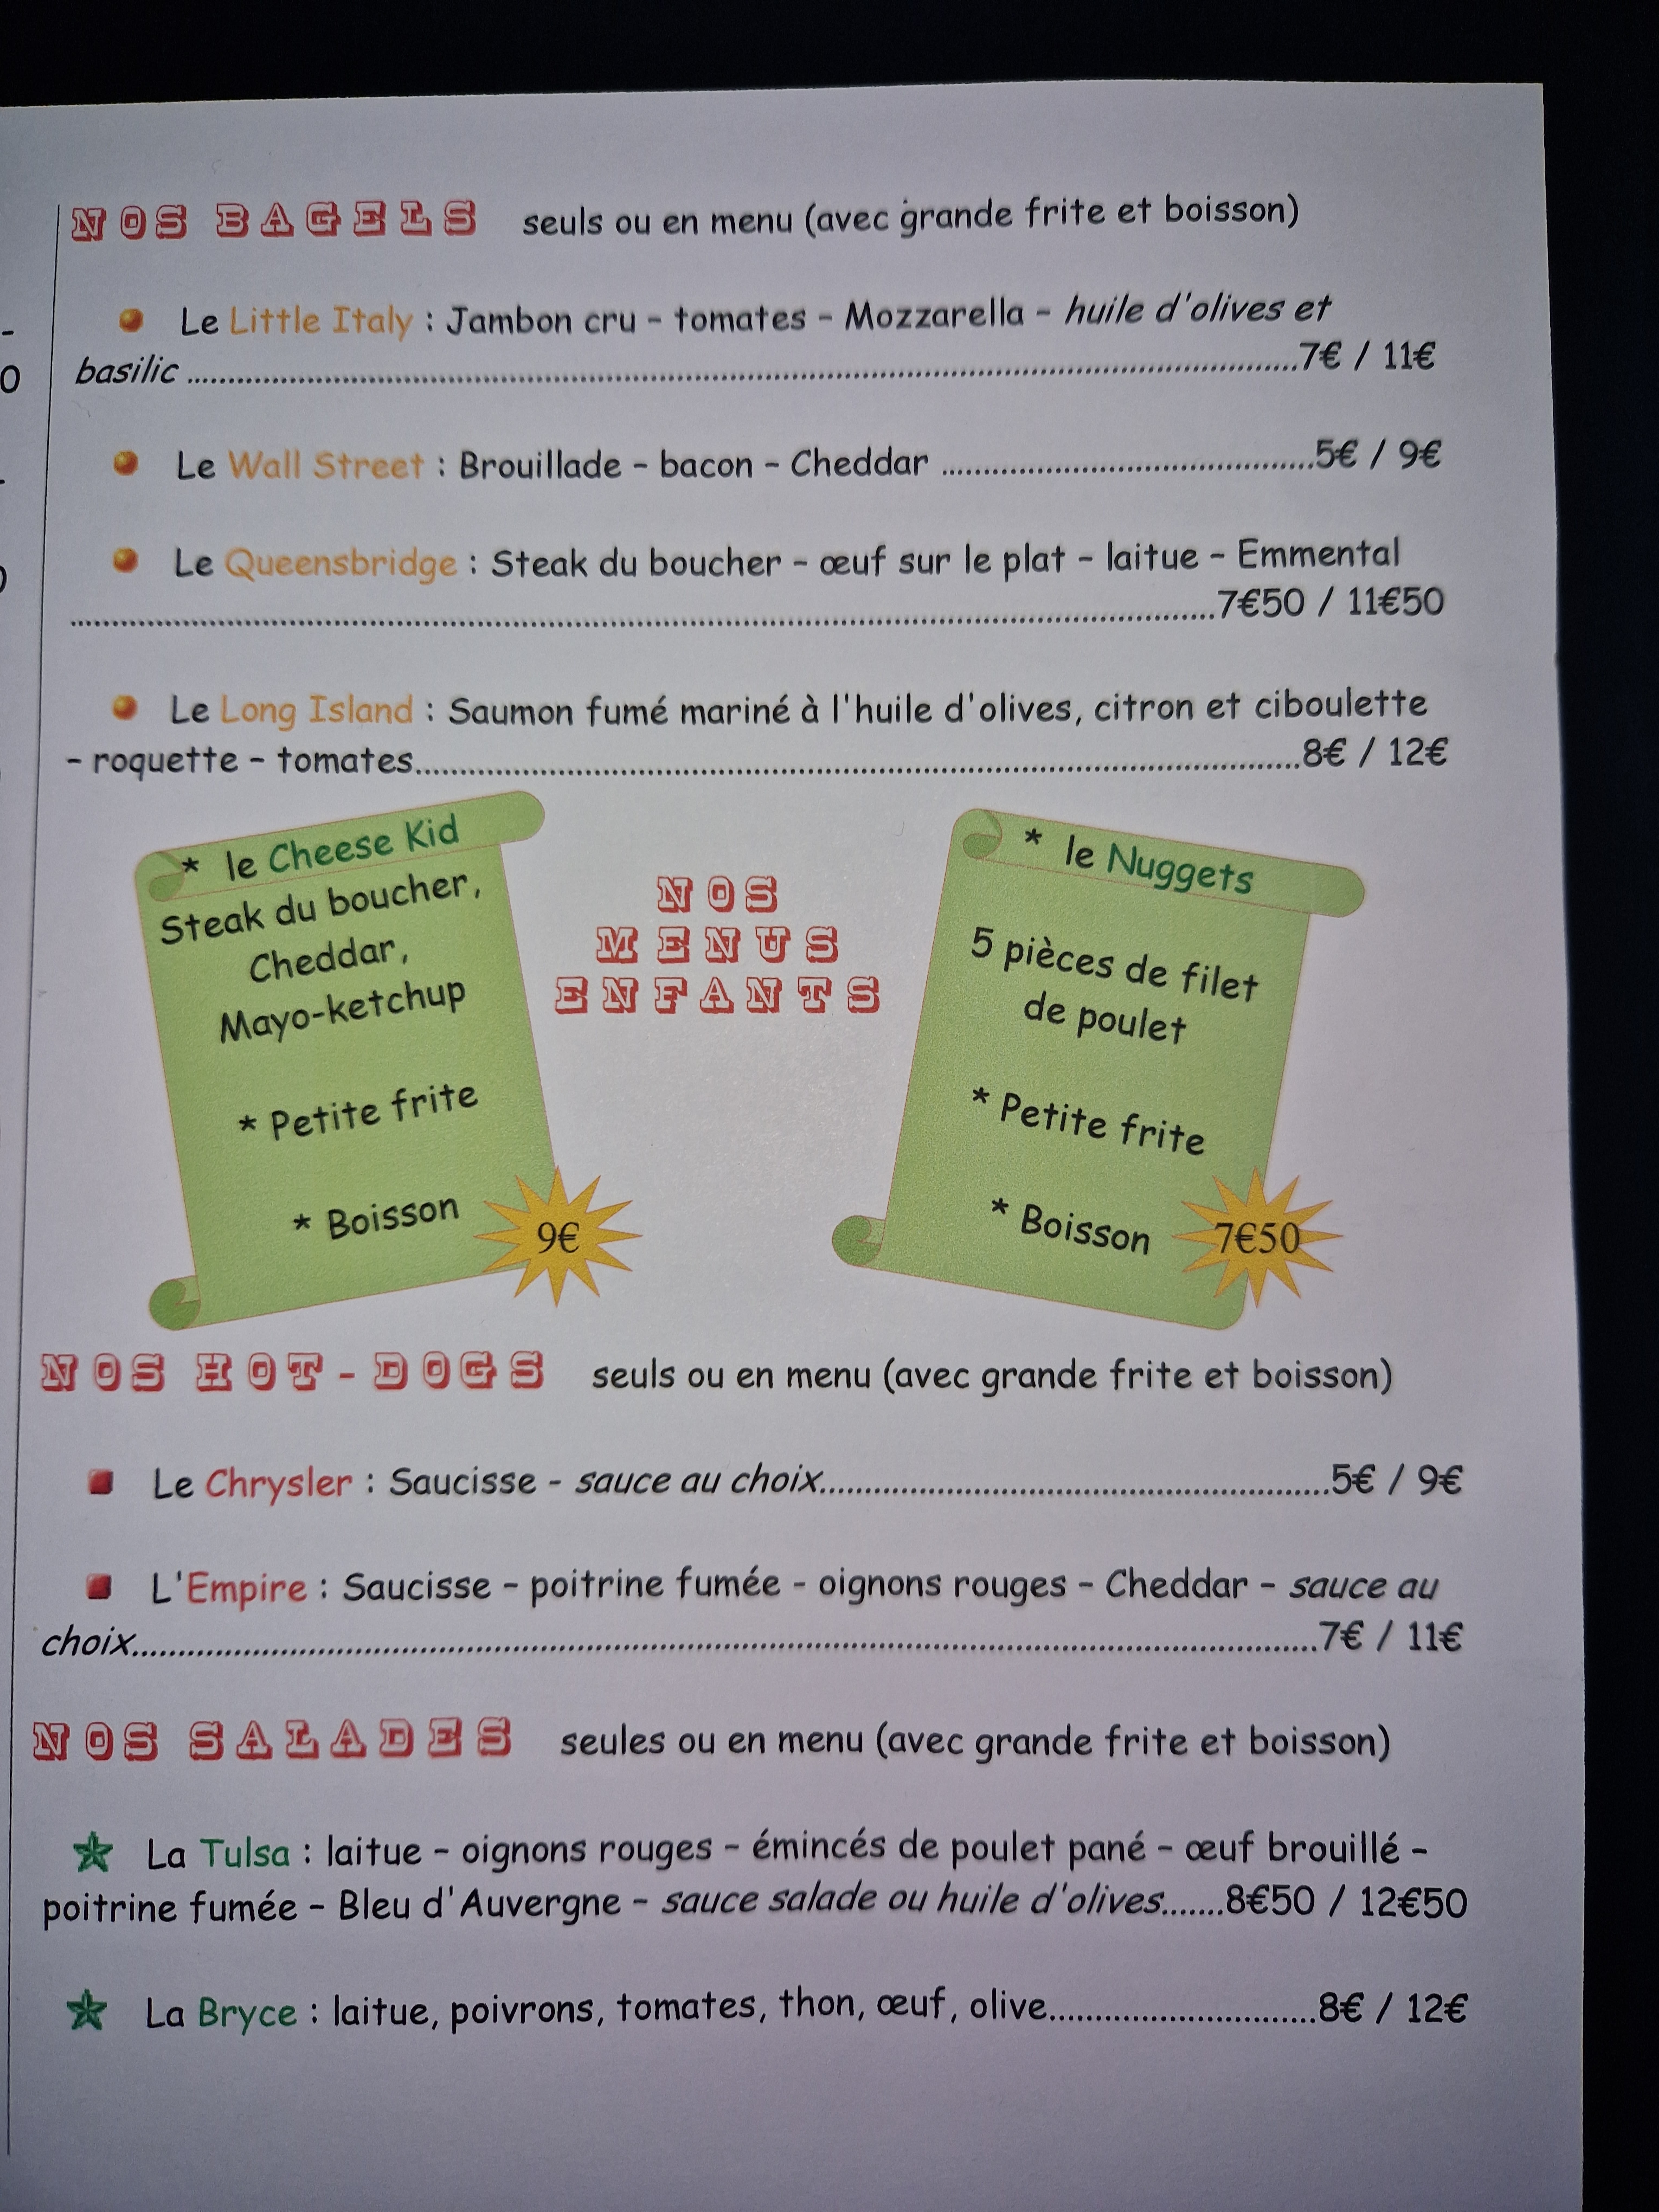 NOS BAGELS seuls ou en menu (avec grande frite et boisson)
Le Little Italy : Jambon cru – tomates – Mozzarella – huile d'olives et
basilic ........................................7€ / 11€
Le Wall Street : Brouillade – bacon – Cheddar ........................................5€ / 9€
Le Queensbridge : Steak du boucher – œuf sur le plat – laitue – Emmental
........................................7€50 / 11€50
Le Long Island : Saumon fumé mariné à l'huile d'olives, citron et ciboulette
– roquette – tomates........................................8€ / 12€
* le Cheese Kid
Steak du boucher,
Cheddar,
Mayo-ketchup
* Petite frite
* Boisson
9€
NOS
MENUS
ENFANTS
* le Nuggets
5 pièces de filet
de poulet
* Petite frite
* Boisson
7€50
NOS HOT-DOGS seuls ou en menu (avec grande frite et boisson)
Le Chrysler : Saucisse - sauce au choix........................................5€ / 9€
L'Empire : Saucisse – poitrine fumée - oignons rouges – Cheddar – sauce au
choix........................................7€ / 11€
NOS SALADES seules ou en menu (avec grande frite et boisson)
La Tulsa : laitue – oignons rouges – émincés de poulet pané – œuf brouillé –
poitrine fumée – Bleu d'Auvergne – sauce salade ou huile d'olives.......8€50 / 12€50
La Bryce : laitue, poivrons, tomates, thon, œuf, olive................................8€ / 12€